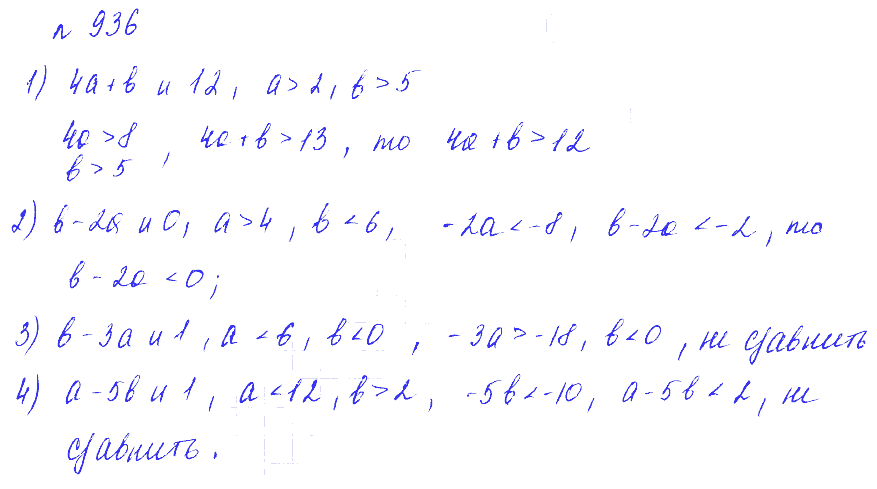 n 936
1) 4a+b и 12, a>2, b>5
4a>8, 4a+b>13, то 4a+b>12
b>5
2) b-2a и 0, a>4, b<6, -2a<-8, b-2a<-2, то
b-2a<0;
3) b-3a и 1, a<6, b<0, -3a>-18, b<0, не сравнить
4) a-5b и 1, a<12, b>2, -5b<-10, a-5b<2, не
сравнить.